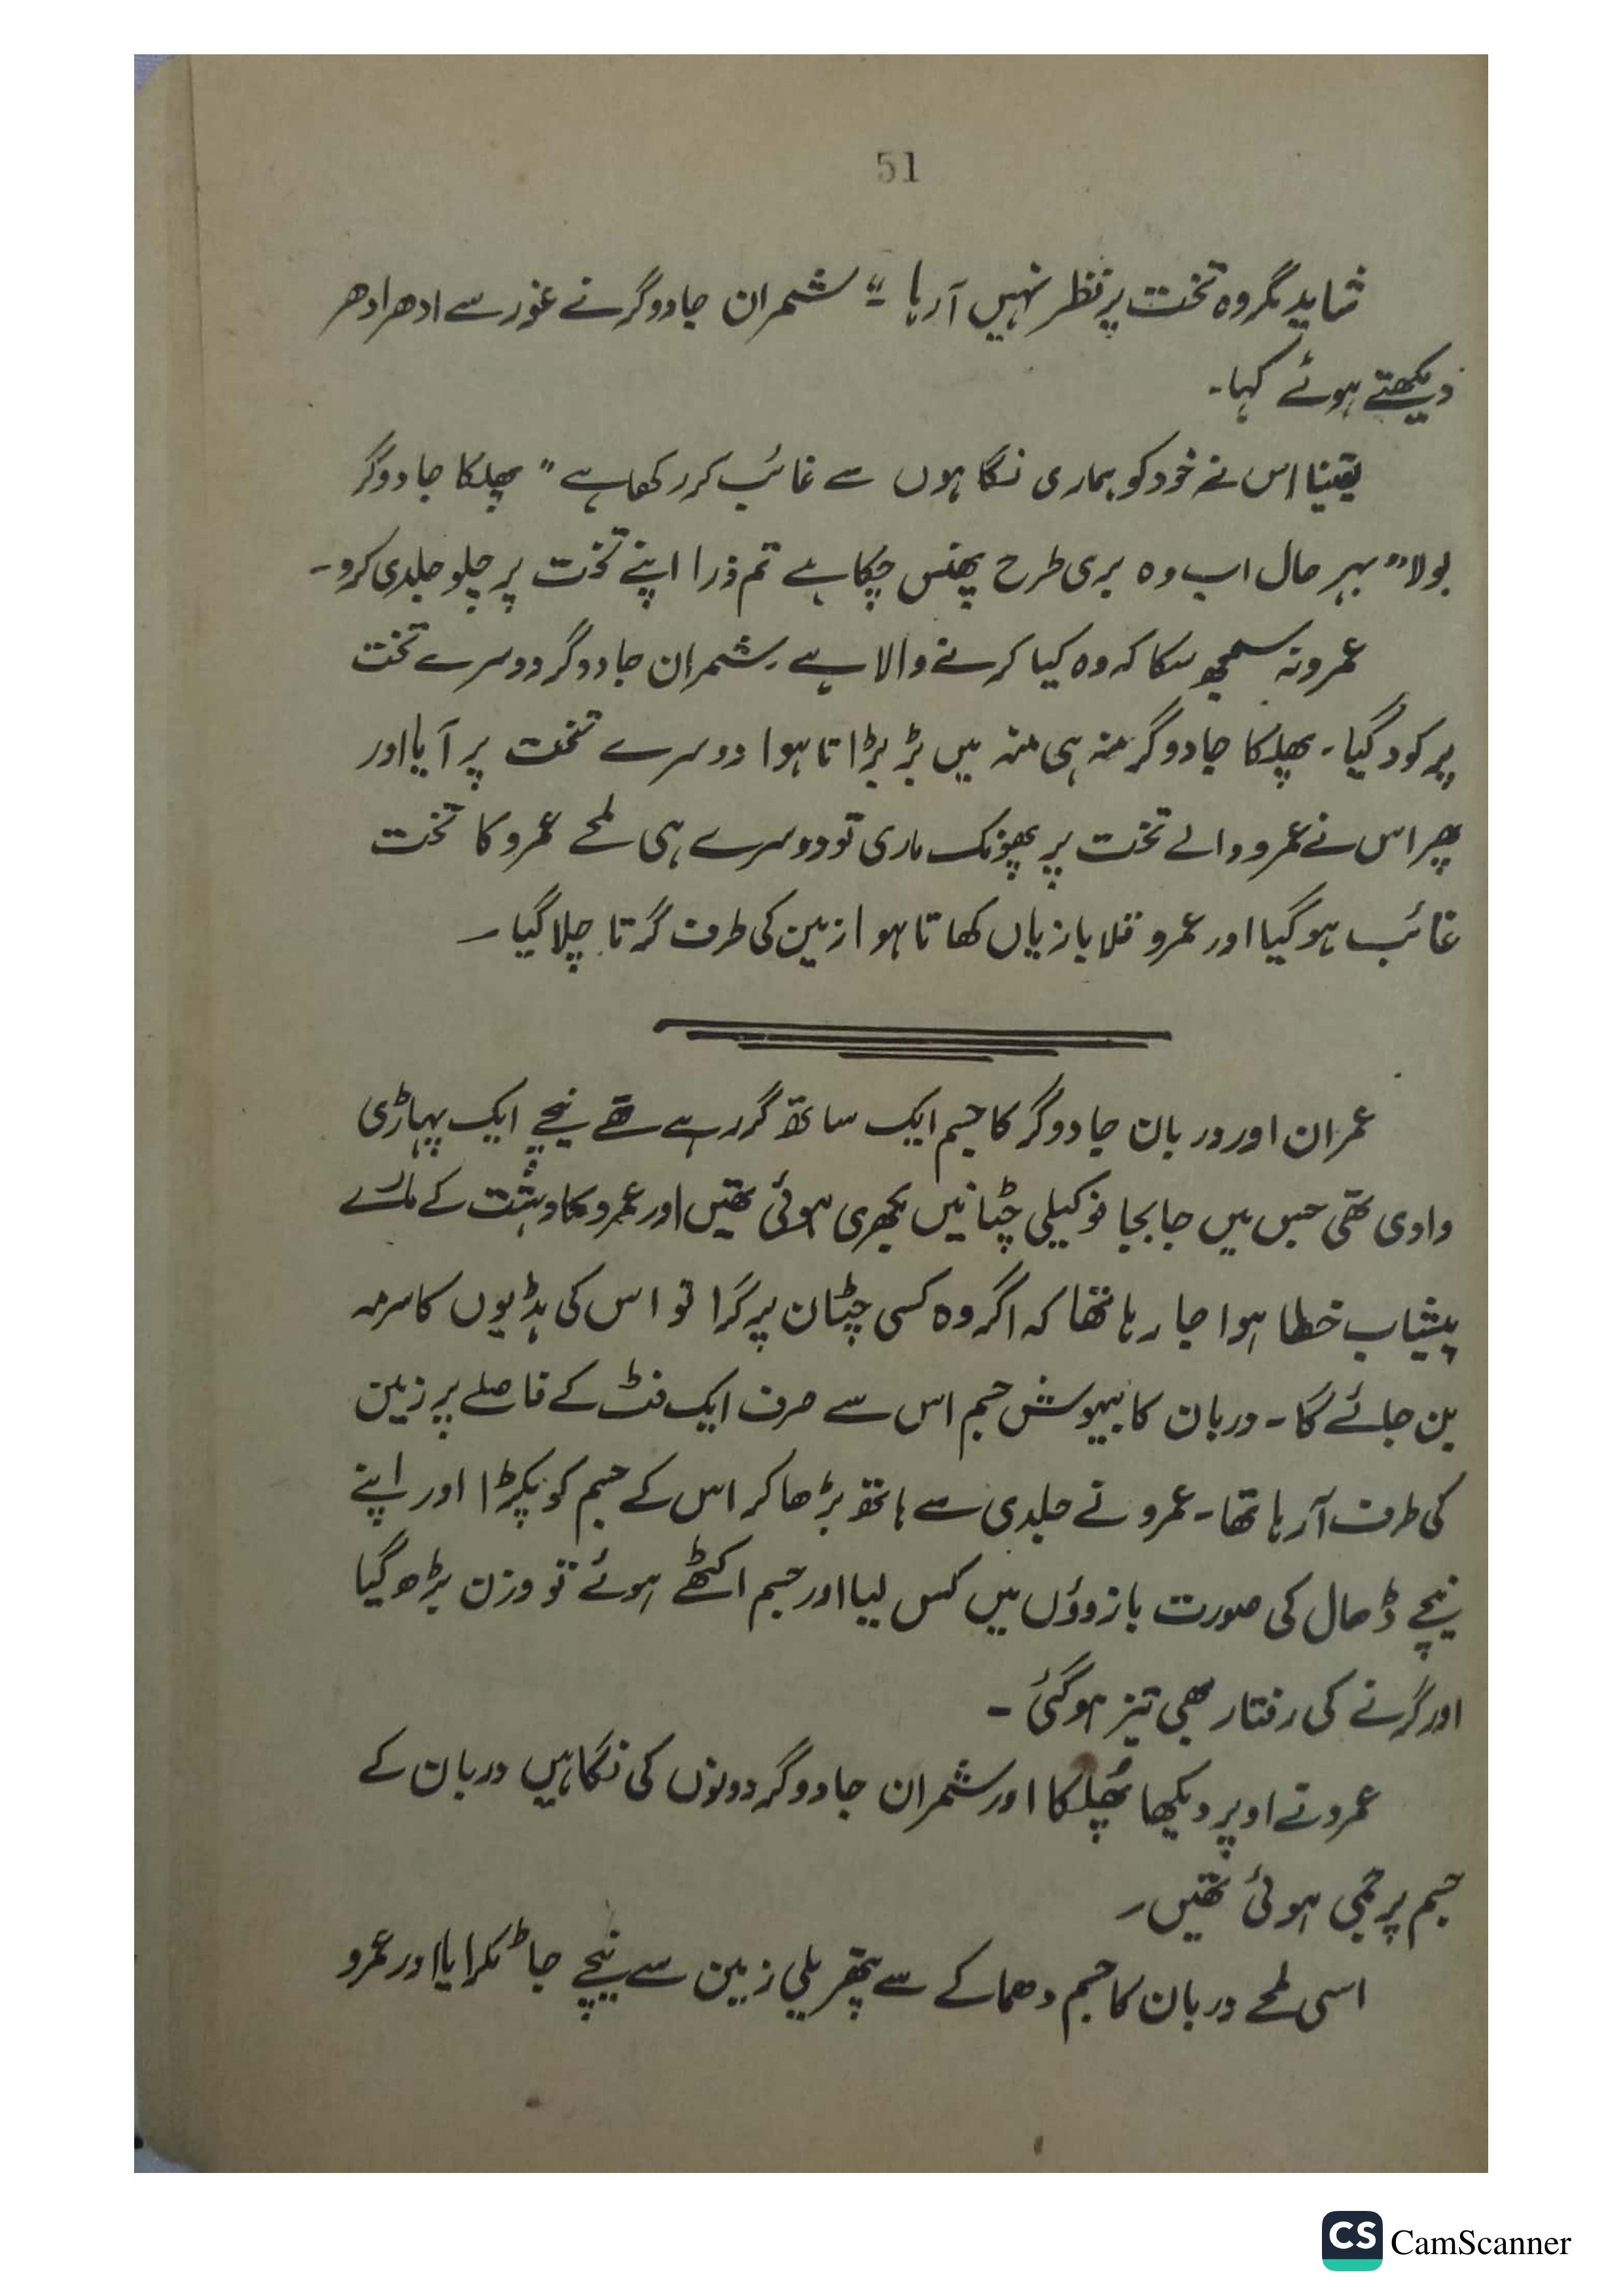 51
شاید مگر وہ تخت پر نظر نہیں آ رہا ۔" شمران جادوگر نے غور سے ادھر ادھر
دیکھتے ہوئے کہا۔
یقینا اس نے خود کو ہماری نگاہوں سے غائب کر رکھا ہے" پھلکا جادوگر
بولا" بہر حال اب وہ بری طرح پھنس چکا ہے تم ذرا اپنے تخت پر چلو جلدی کرو۔
عمرو نہ سمجھ سکا کہ وہ کیا کرنے والا ہے۔ شمران جادوگر دوسرے تخت
پر کود گیا۔ پھلکا جادوگر منہ ہی منہ میں بڑبڑاتا ہوا دوسرے تخت پر آیا اور
پھر اس نے عمرو والے تخت پر پھونک ماری تو دوسرے ہی لمحے عمرو کا تخت
غائب ہو گیا اور عمرو قلابازیاں کھاتا ہوا زمین کی طرف گرتا چلا گیا۔
عمران اور دربان جادوگر کا جسم ایک ساتھ گر رہے تھے نیچے ایک پہاڑی
وادی تھی جس میں جابجا نوکیلی چٹانیں بکھری ہوئی تھیں اور عمرو کا دہشت کے مارے
پیشاب خطا ہوا جا رہا تھا کہ اگر وہ کسی چٹان پر گرا تو اس کی ہڈیوں کا سرمہ
بن جائے گا۔ دربان کا بیہوش جسم اس سے صرف ایک فٹ کے فاصلے پر زمین
کی طرف آ رہا تھا۔ عمرو نے جلدی سے ہاتھ بڑھا کر اس کے جسم کو پکڑا اور اپنے
نیچے ڈھال کی صورت بازوؤں میں کس لیا اور جسم اکٹھے ہوئے تو وزن بڑھ گیا
اور گرنے کی رفتار بھی تیز ہو گئی۔
عمرو نے اوپر دیکھا پُھلکا اور شمران جادوگر دونوں کی نگاہیں دربان کے
جسم پر جمی ہوئی تھیں۔
اسی لمحے دربان کا جسم دھماکے سے پتھریلی زمین سے نیچے جا ٹکرایا اور عمرو
CS CamScanner